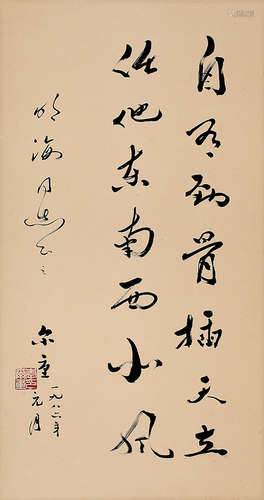 自有劲骨插天立
任他东南西北风
明海同志正之
尔重
一九八年
元月